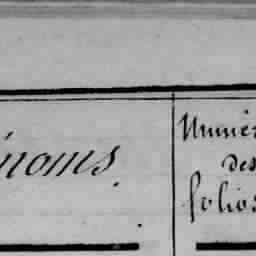 énoms.
Numér
des
folios